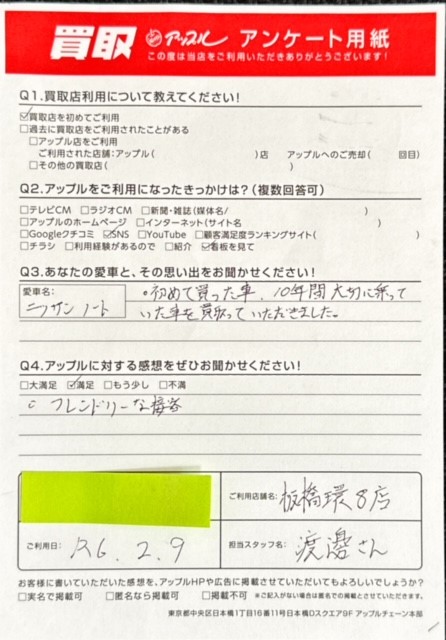 買取 アップル アンケート用紙
この度は当店をご利用いただきありがとうございます!
Q1.買取店利用について教えてください!
☑買取店を初めてご利用
□過去に買取店をご利用されたことがある
□アップル店をご利用
ご利用された店舗:アップル( )店 アップルへのご売却( 回目)
□その他の買取店( )
Q2.アップルをご利用になったきっかけは?(複数回答可)
□テレビCM □ラジオCM □新聞・雑誌(媒体名/ )
□アップルのホームページ □インターネット(サイト名 )
□Googleクチコミ ☑SNS □YouTube □顧客満足度ランキングサイト( )
□チラシ □利用経験があるので □紹介 ☑看板を見て
Q3.あなたの愛車と、その思い出をお聞かせください!
愛車名:
ニッサン ノート
。初めて買った車、10年間大切に乗って
いた車を買取っていただきました。
Q4.アップルに対する感想をぜひお聞かせください!
□大満足 ☑満足 □もう少し □不満
○ フレンドリーな接客
ご利用店舗名: 板橋環8店
ご利用日: R6. 2. 9
担当スタッフ名: 渡邊さん
お客様に書いていただいた感想を、アップルHPや広告に掲載させていただいてもよろしいでしょうか?
□実名で掲載可 □匿名なら掲載可 □掲載不可 ※ご記入がない場合は匿名での掲載とさせていただきます。
東京都中央区日本橋1丁目16番11号日本橋Dスクエア9F アップルチェーン本部